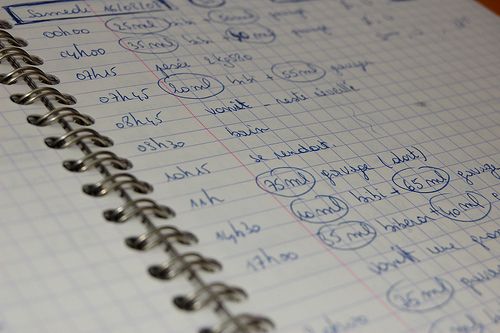 Samedi 16/08/0
00h00 25ml bibi + 50ml gavage
04h00 35ml bibi 40ml gavage
07h15 pesée 2kg520
07h45 20ml bibi + 55ml gavage
08h45 vomit - reste réveillé
09h30 bain
10h15 se rendort
11h 75ml gavage (dort)
14h30 10ml bibi + 65ml gavage
17h00 35ml biberon + 40ml
vomit une
75ml